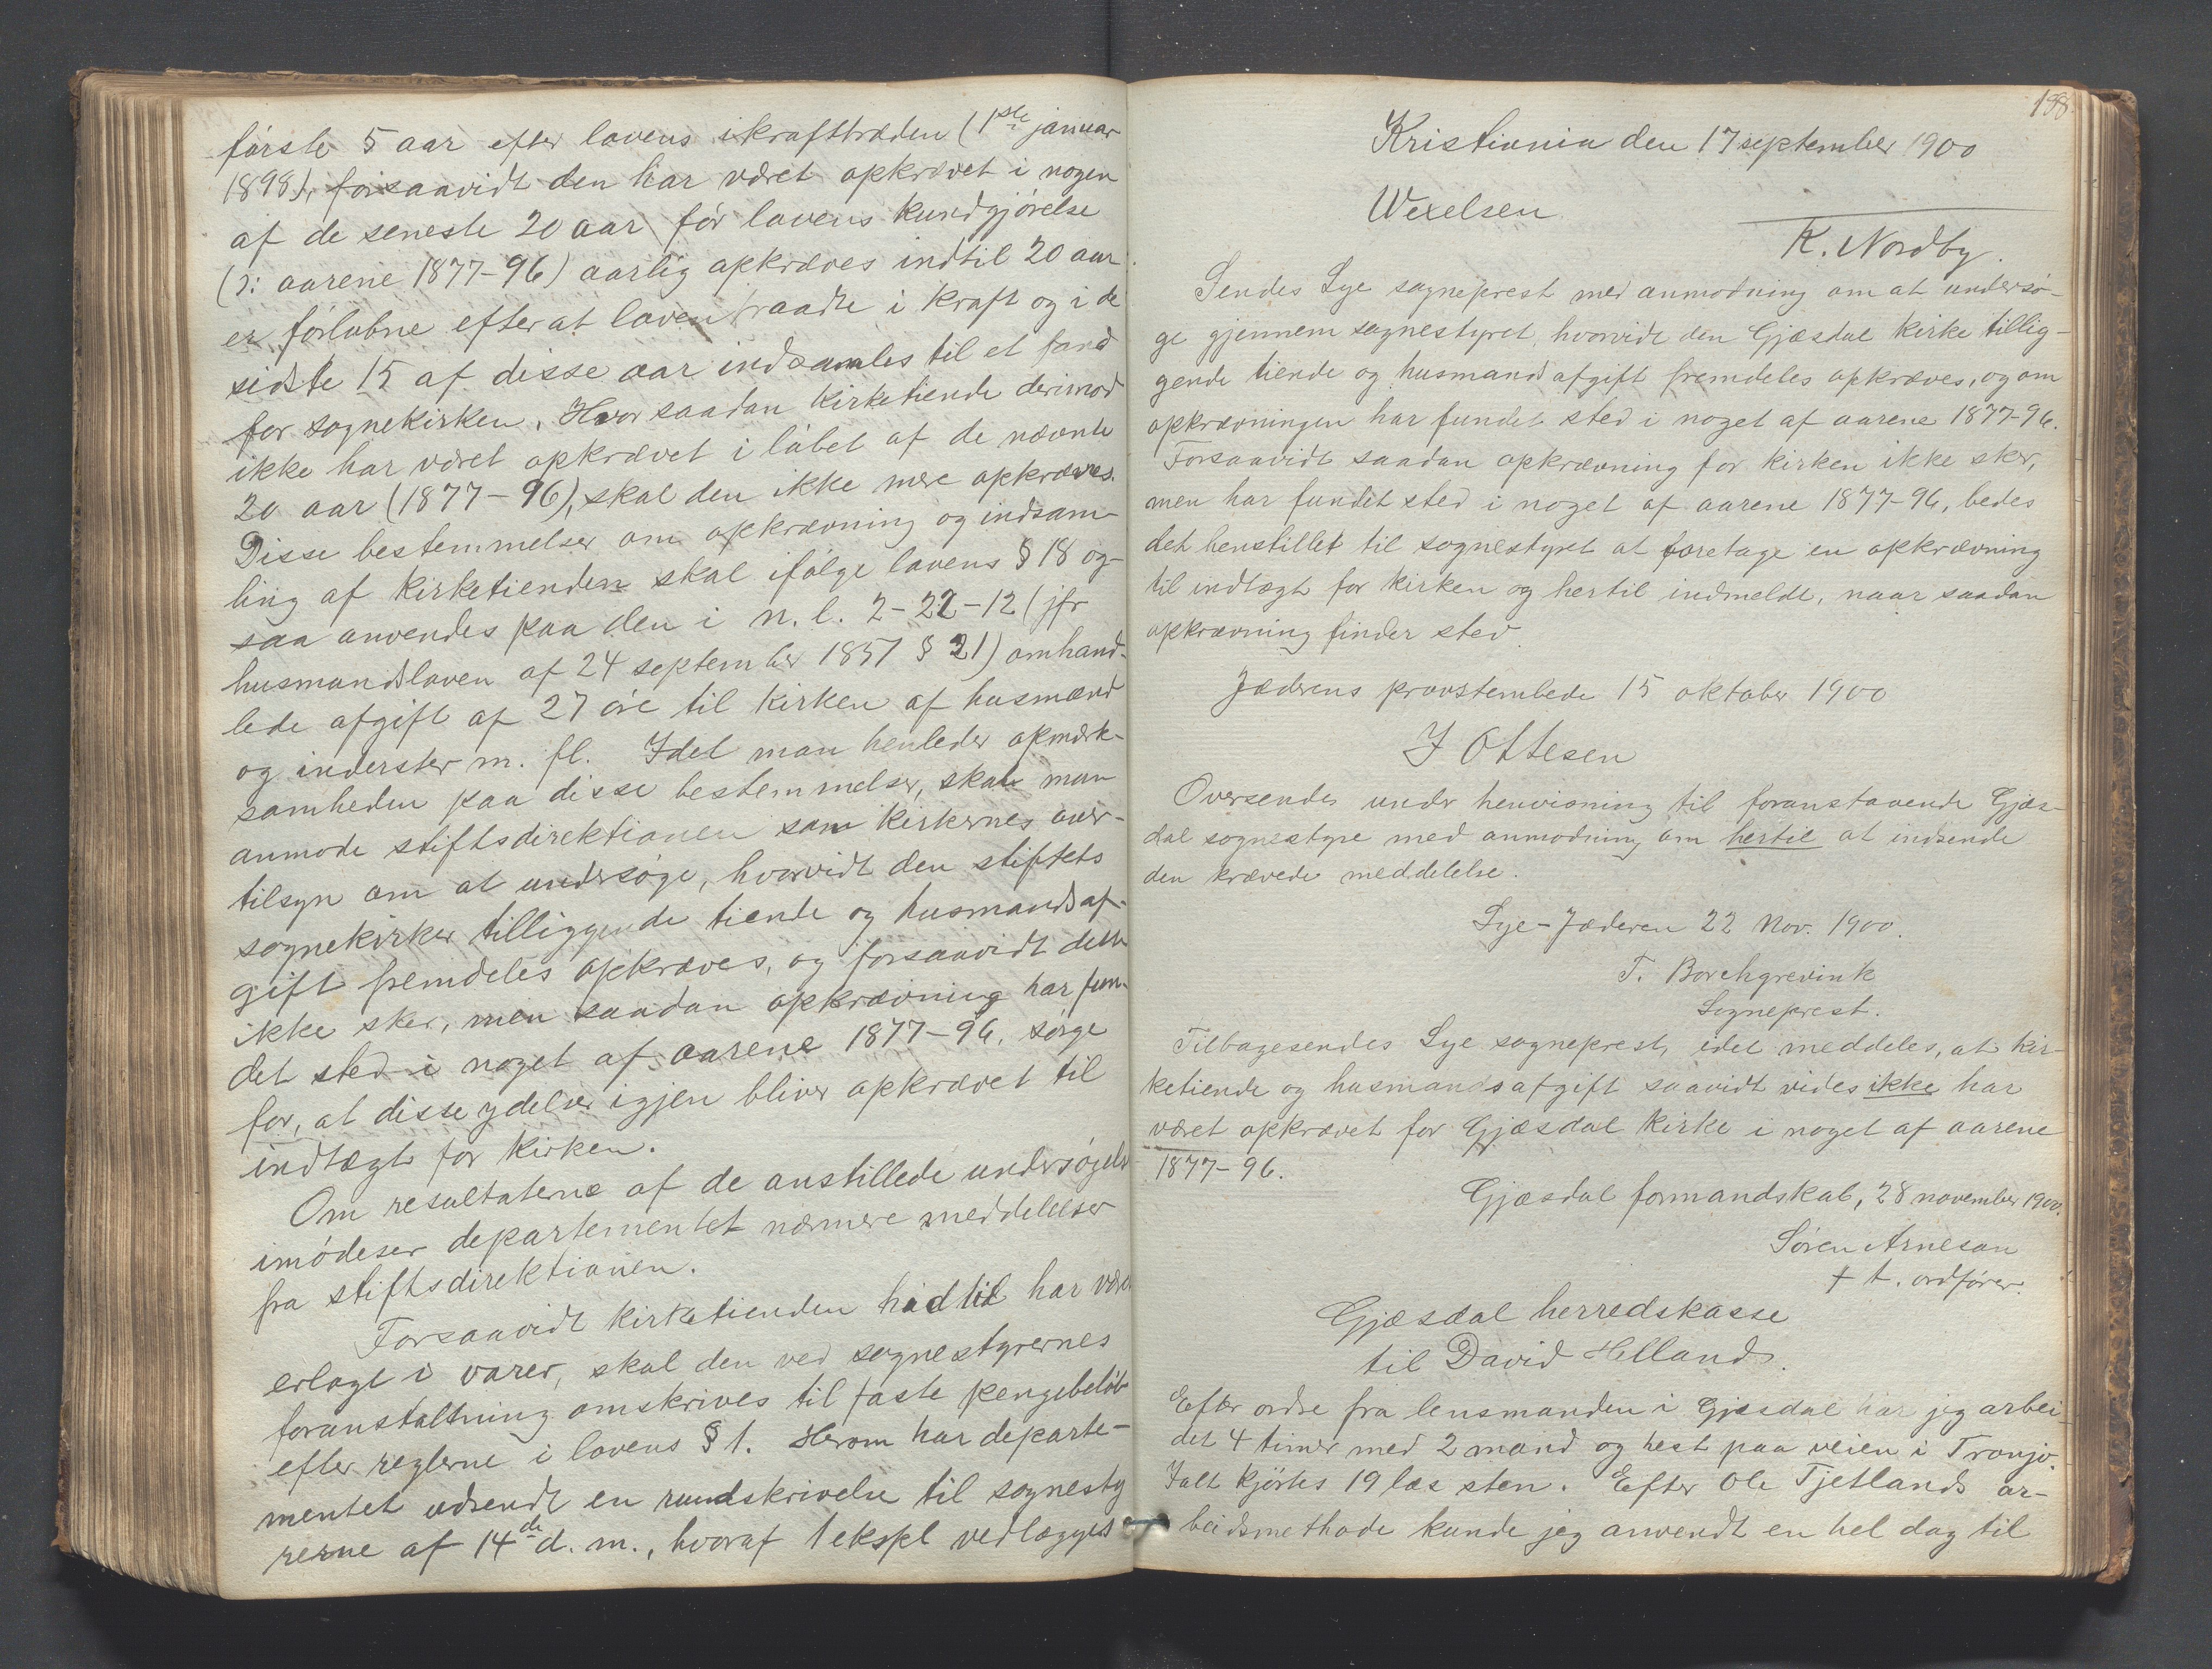 første 5 aar efter lovens ikrafttræden (1ste januar
1898), forsaavidt den har været opkrævet i nogen
af de seneste 20 aar før lovens kundgjørelse
(ɔ: aarene 1877-96) aarlig opkræves indtil 20 aar
er forløbne efterat loven traadte i kraft og i de
sidste 15 af disse aar indsamles til et fond
for sognekirken. Hvor saadan kirketiende derimod
ikke har været opkrævet i løbet af de nævnte
20 aar (1877-96), skal den ikke mere opkræves.
Disse bestemmelser om opkrævning og indsam-
ling af kirketienden skal ifølge lovens § 18 og-
saa anvendes paa den i N. L. 2-22-12 (jfr
husmandsloven af 24 september 1851 § 21) omhand-
lede afgift af 27 øre til kirken af husmænd
og inderster m. fl. Idet man henleder opmærk-
somheden paa disse bestemmelser, skal man
anmode stiftsdirektionen som kirkernes over-
tilsyn om at undersøge, hvorvidt den stiftets
sognekirker tilliggende tiende og husmandsaf-
gift fremdeles opkræves, og forsaavidt dette
ikke sker, men saadan opkrævning har fun-
det sted i noget af aarene 1877-96, sørge
for, at disse ydelser igjen bliver opkrævet til
indtægt for kirken.
Om resultaterne af de anstillede undersøgelser
imødeser departementet nærmere meddelelser
fra stiftsdirektionen.
Forsaavidt kirketienden hidtil har været
erlagt i varer, skal den ved sognestyrernes
foranstaltning omskrives til faste pengebeløb
efter reglerne i lovens § 1. Herom har departe-
mentet udsendt en rundskrivelse til sognesty
rerne af 14de d. m., hvoraf 1 ekspl vedlægges
188
Kristiania den 17 september 1900
Wexelsen
K. Nordby.
Sendes Lye sogneprest med anmodning om at undersø-
ge gjennem sognestyret, hvorvidt den Gjæsdal kirke tillig-
gende tiende og husmandsafgift fremdeles opkræves, og om
opkrævningen har fundet sted i noget af aarene 1877-96.
Forsaavidt saadan opkrævning for kirken ikke sker,
men har fundet sted i noget af aarene 1877-96, bedes
det henstillet til sognestyret at foretage en opkrævning
til indtægt for kirken og hertil indmeldt, naar saadan
opkrævning finder sted.
Jæderens provstembede 15 oktober 1900
J Ottesen
Oversendes under henvisning til foranstaaende Gjæs-
dal sognestyre med anmodning om hertil at indsende
den krævede meddelelse.
Lye-Jæderen 22 Nov. 1900.
T. Borchgrevink
Sogneprest.
Tilbagesendes Lye sogneprest, idet meddeles, at kir-
ketiende og husmandsafgift saavidt vides ikke har
været opkrævet for Gjæsdal kirke i noget af aarene
1877-96.
Gjæsdal formandskab, 28 november 1900.
Søren Arneson
f. t. ordfører.
Gjæsdal herredskasse
til David Helland.
Efter ordre fra lensmanden i Gjæsdal har jeg arbei-
det 4 timer med 2 mand og hest paa veien i Tronjo.
Ialt kjørtes 19 læs sten. Efter Ole Tjetlands ar-
beidsmethode kunde jeg anvendt en hel dag til